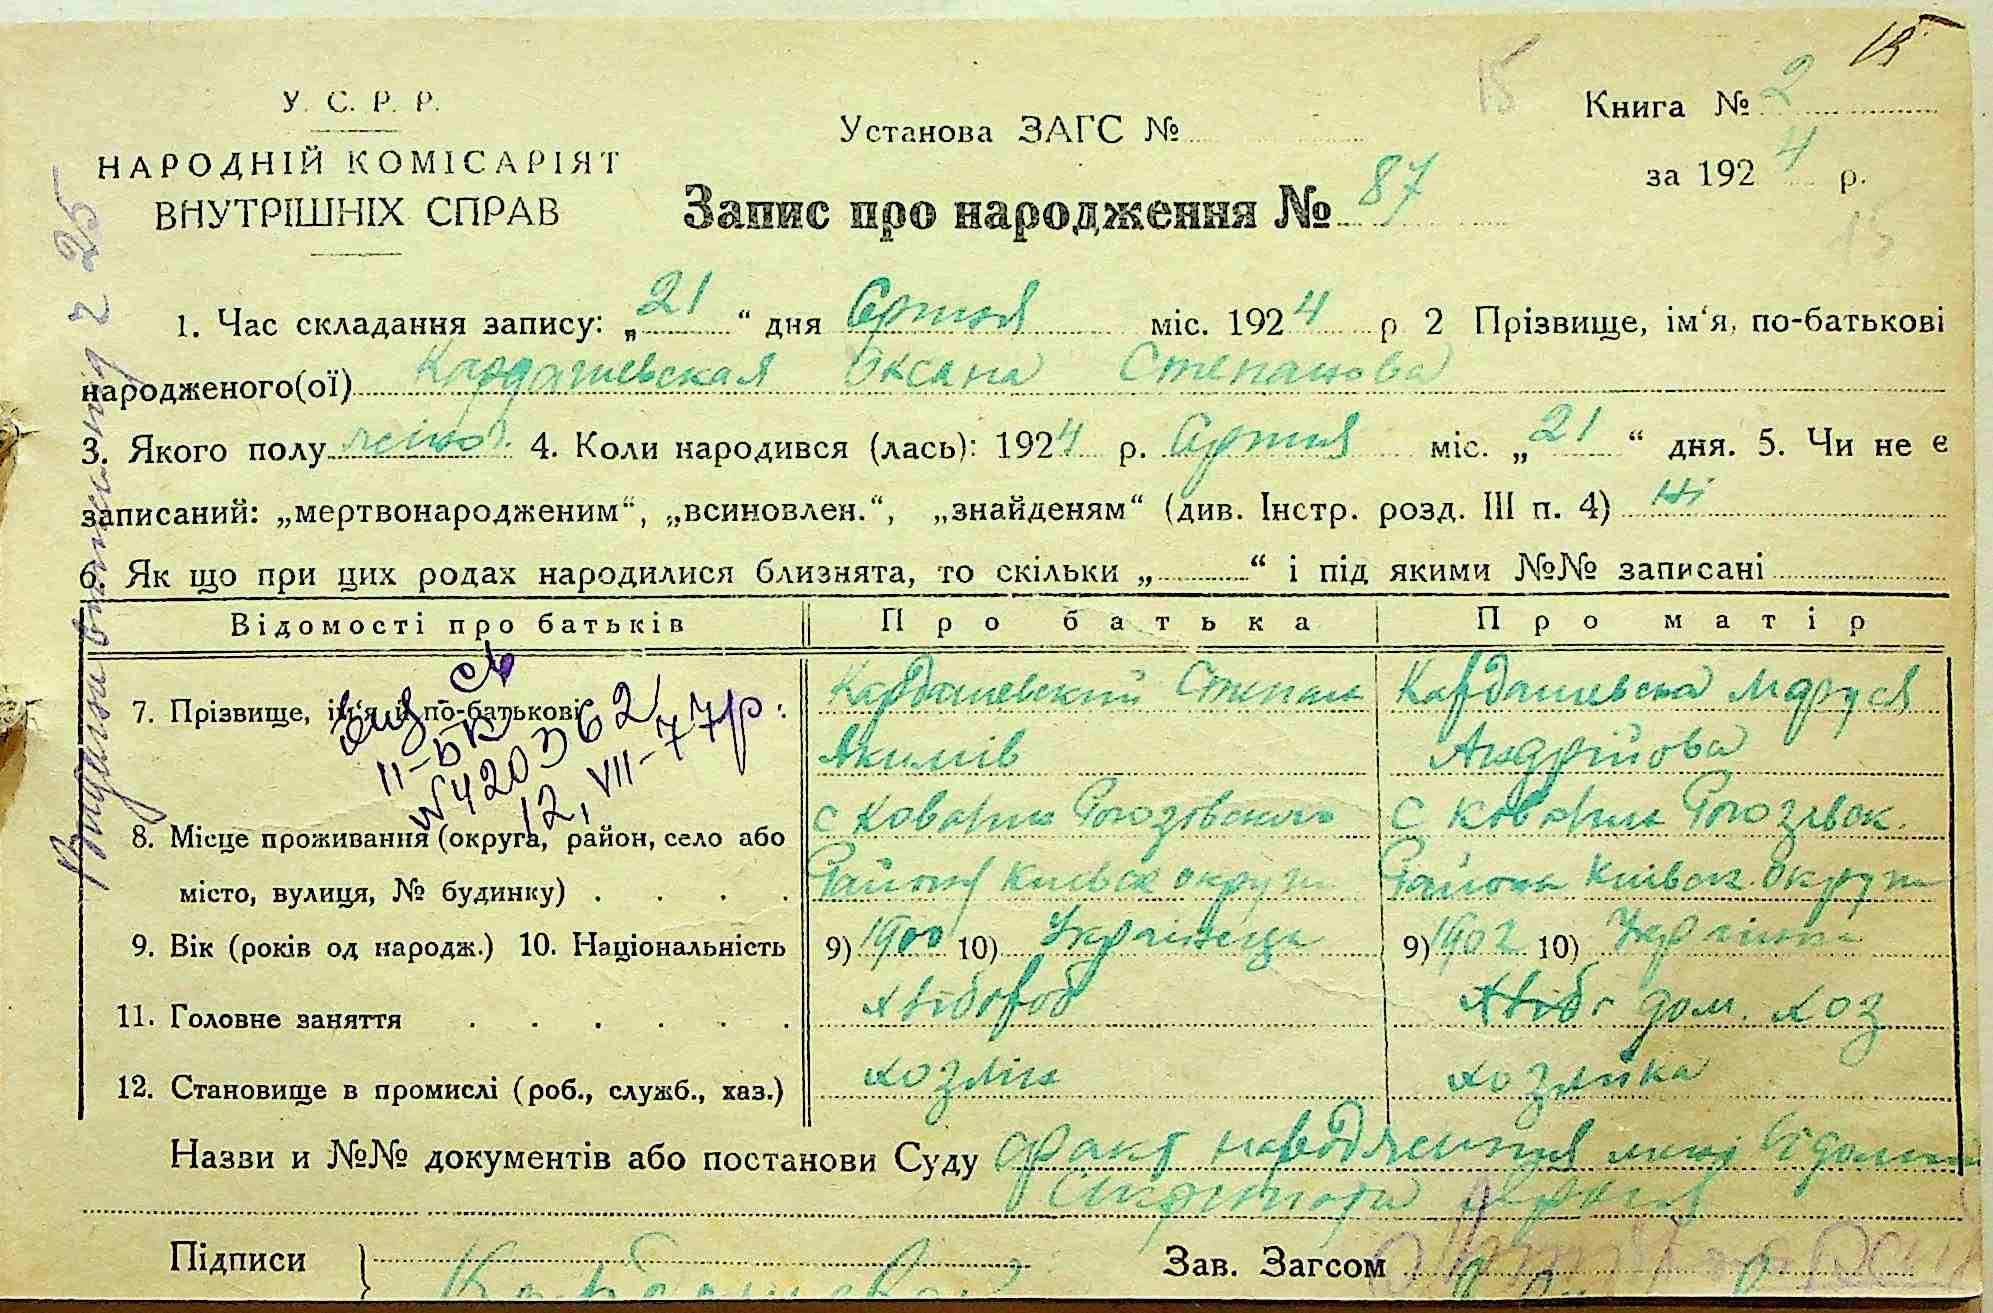 У. С. Р. Р.
НАРОДНІЙ КОМІСАРІЯТ
ВНУТРІШНІХ СПРАВ
15
15
Книга № 2
за 1924 р.
15
Установа ЗАГС №
Запис про народження № 87
1. Час складання запису: „21“ дня Серпня міс. 1924 р 2 Прізвище, ім‘я, по-батькові
народженого(ої) Кардашевская Оксана Степанова
3. Якого полу жіноч. 4. Коли народився (лась): 1924 р. Серпня міс. „21“ дня. 5. Чи не є
записаний: „мертвонародженим“, „всиновлен.“, „знайденям“ (див. Інстр. розд. III п. 4) Ні
6. Як що при цих родах народилися близнята, то скільки „ “ і під якими №№ записані
Відомості про батьків Про батька Про матір
7. Прізвище, ім‘я й по-батькові Кардашевский Степан Кардашевска Маруся
Якимів Андрійова
II-БК
№ 420362
12, VII-77р.
8. Місце проживання (округа, район, село або с Ковалин Рогозівского с Ковалин Рогозівск.
місто, вулиця, № будинку) Району Київск округи Району Київск. округи
9. Вік (років од народж.) 10. Національність 9) 1900 10) Українець 9) 1902 10) Українка
11. Головне заняття хлібороб хлібр дом. хоз
12. Становище в промислі (роб., служб., хаз.) хозяін хозяйка
Назви и №№ документів або постанови Суду факт народження мені відомий
Підписи Кардашевский
Зав. Загсом